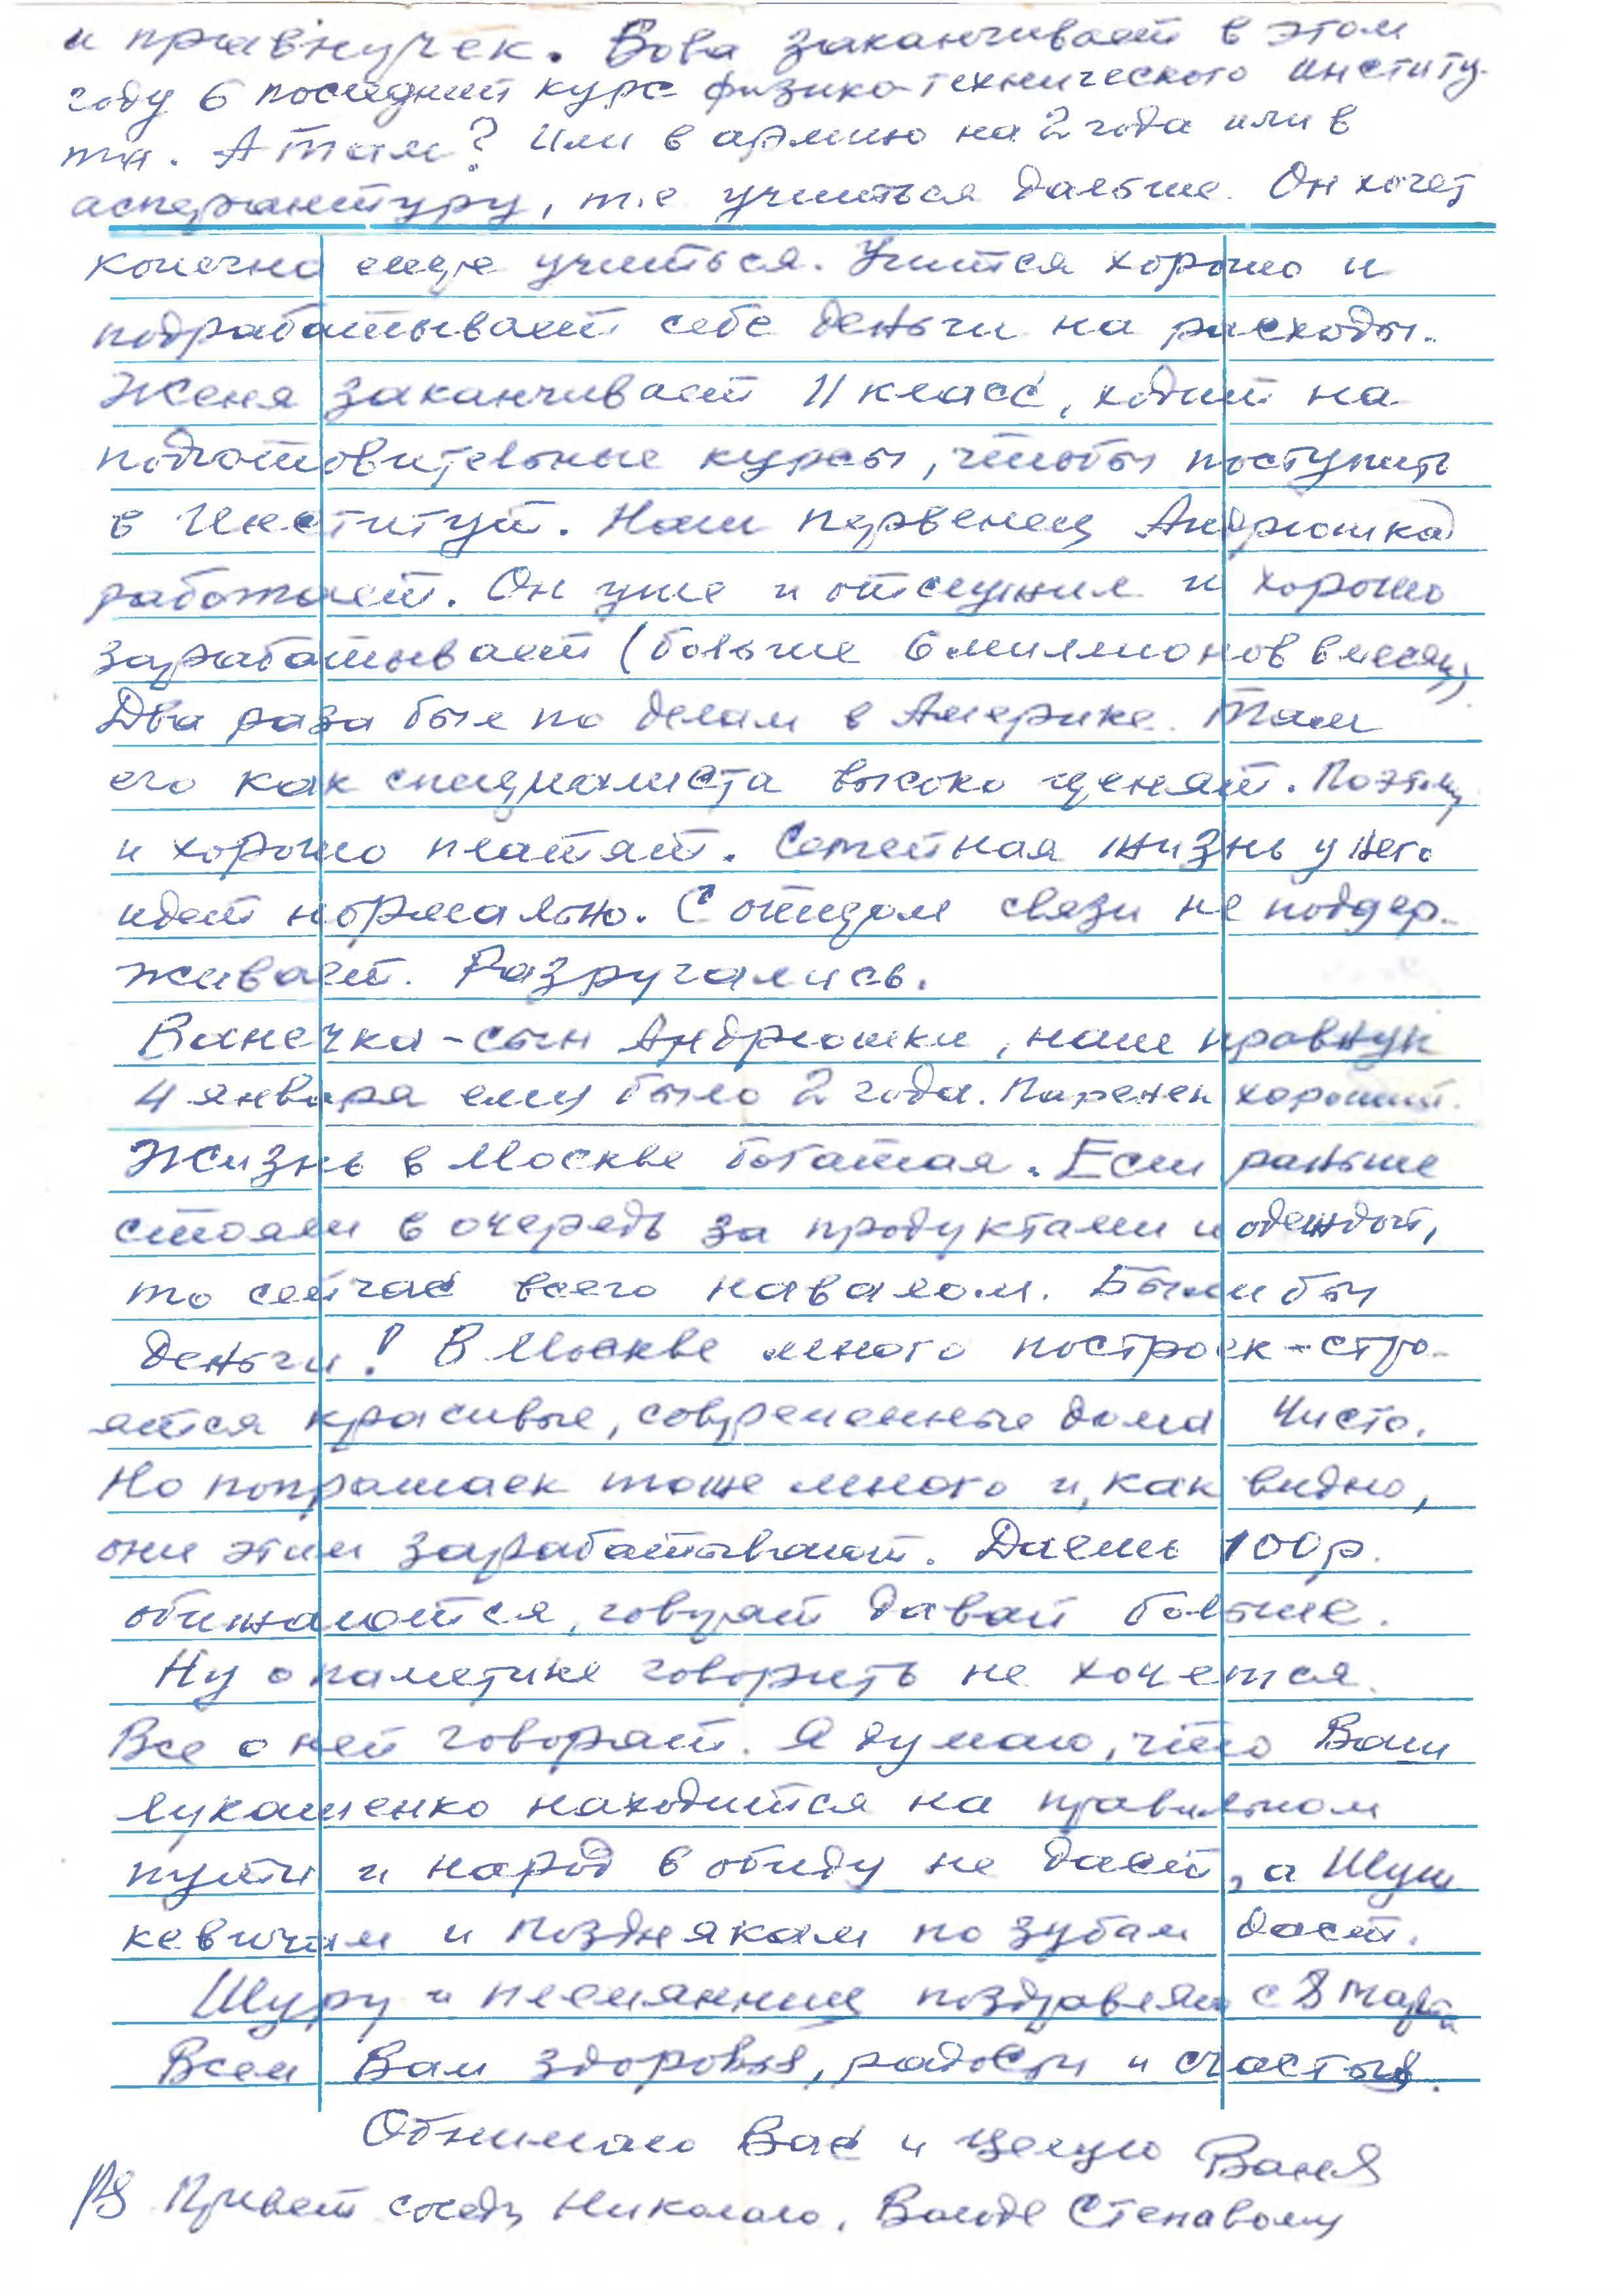 и правнучек. Вова заканчивает в этом
году 6 последний курс физико-технического институ-
та. А там? Или в армию на 2 года или в
аспирантуру, т.е учиться дальше. Он хочет
конечно еще учиться. Учится хорошо и
подрабатывает себе деньги на расходы.
Женя заканчивает 11 класс, ходит на
подготовительные курсы, чтобы поступить
в Институт. Наш первенец Андрюшка
работает. Он уже и отслужил и хорошо
зарабатывает (больше 6 миллионов в месяц)
Два раза был по делам в Америке. Там
его как специалиста высоко ценят. Поэтому
и хорошо платят. Семейная жизнь у него
идет нормально. С отцом связи не поддер-
живает. Разругались.
Ванечка - сын Андрюшки, наш правнук
4 января ему было 2 года. Паренек хороший.
Жизнь в Москве богатая. Если раньше
стояли в очередь за продуктами и одеждой,
то сейчас всего навалом. Были бы
деньги! В Москве много построек - стро-
ятся красивые, современные дома Чисто.
Но попрашаек тоже много и, как видно,
они этим зарабатывают. Даешь 100 р.
обижаются, говорят давай больше.
Ну о палитике говорить не хочется.
Все о ней говорят. Я думаю, что Ваш
Лукашенко находится на правильном
пути и народ в обиду не дает, а Шуш
кевичам и Позднякам по зубам дает.
Шуру и племянниц поздравляю с 8 марта
Всем Вам здоровья, радости и счастья.
Обнимаю Вас и целую Ваня
PS Привет соседу Николаю, Володе Степавому